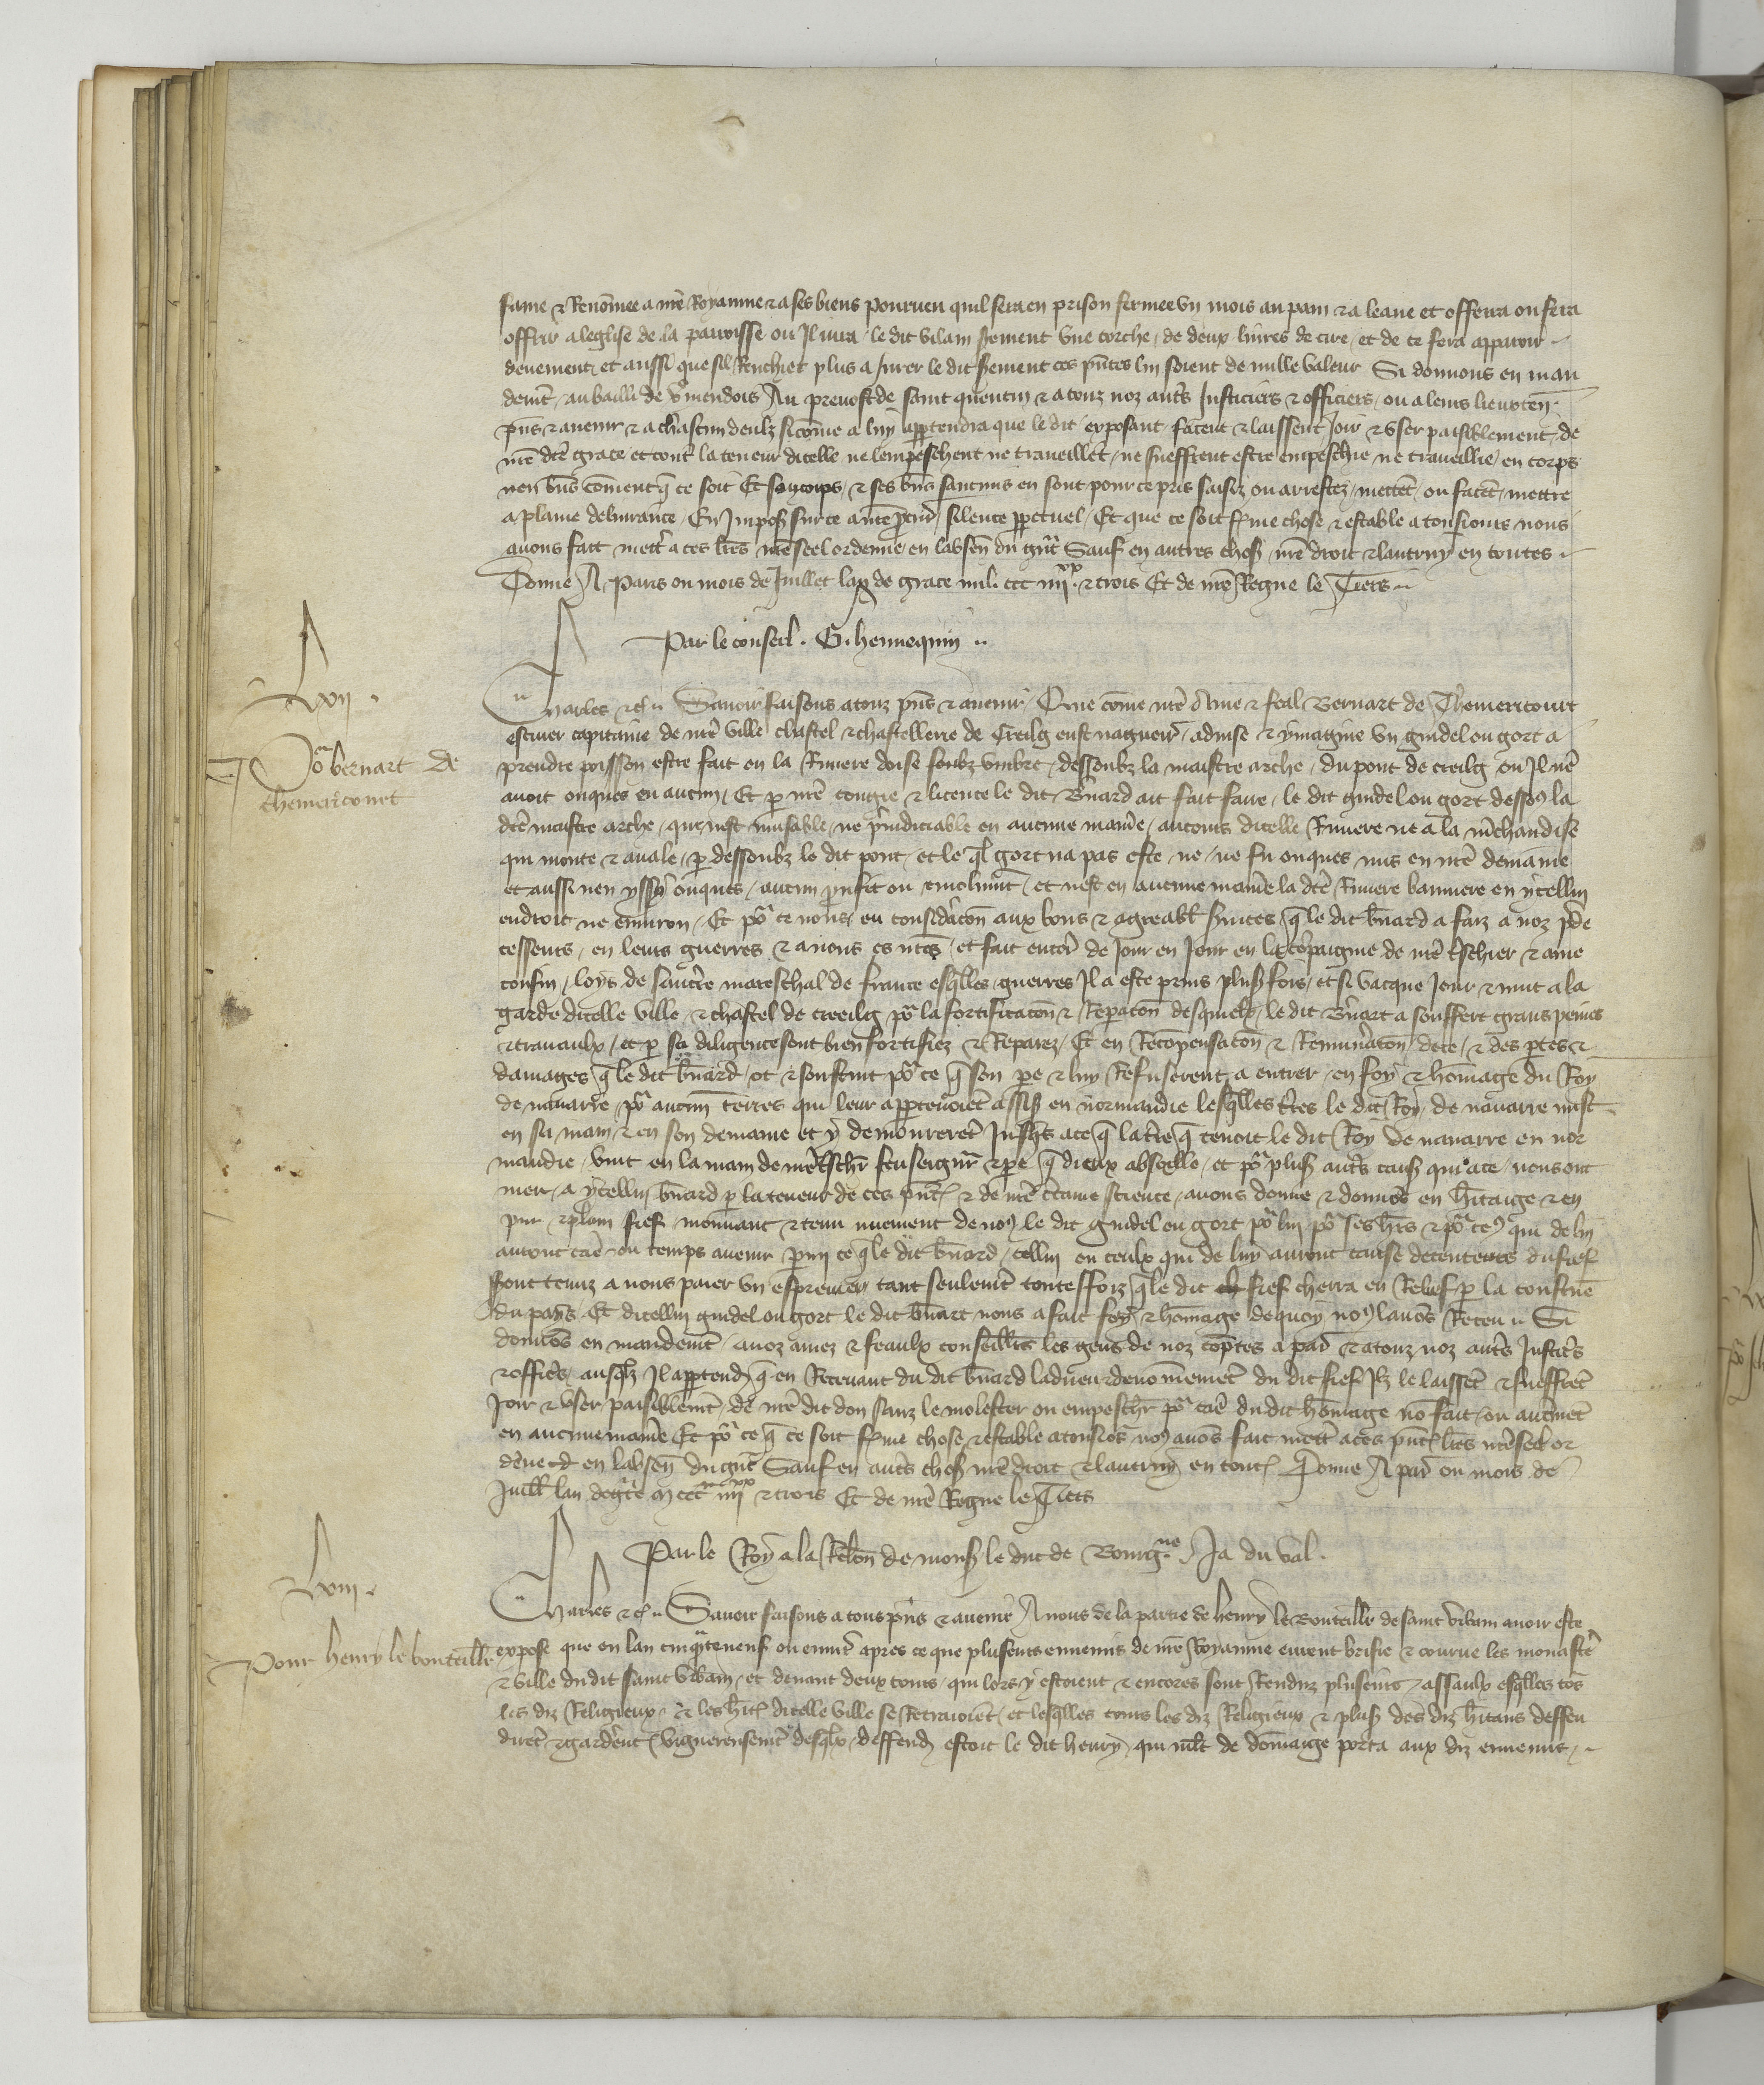 fame & Renōmee a nrē Royaume & a ses biens pourueu quil sera en prison fermee vn mois au pain & a leaue et offerra ou fera
offrir a leglise de la parroisse ou Il iura le dit vilain serement vne torche de deux liures de cire et de ce fera apparoir
deuement et aussi que sil Renchiet plus a Jurer le dit serement ces pn̄tes lui soient de nulle valeur Si donnons en man
demēt au bailli de v'mendois Au preuost de saint quentin & a touz noz aut's Justiciers & officiers ou a leurs lieuxten̄
pn̄s & auenir & a chascun deulz sicōme a luy appartendra que le dit exposant facent & laissent Joir & vser paisiblement de
nrē dtē grace et contˢ la teneur dicelle ne lempeschent ne trauaillēt ne sueffrent estre empeschie ne trauaillie en corps
nen biēs cōment q̄ ce soit Et son corps & ses bn̄s saucuns en sont pour ce pris saisiz ou arrestez mettēt ou facēt mettre
a plaine deliurance En Imposˢ sur ce a nrē p̄cur̄ silence ppetuel Et que ce soit f'me chose & estable a tousiours nous
auons fait mettˢ a ces lr̄es nrē seel ordenne en labsen̄ du gn̄t Sauf en autres chosˢ nrē droit & lautruy en toutes
Donne A Paris ou mois de Juillet lan de grace mil ccc iiii.xx & trois Et de nrē Regne le Tiers
Par le conseil . G. hennequin
Lxii .
Charles &c Sauoir faisons a touz pn̄s & auenir Que cōme nrē Ame & feal Bernart de Themericourt
escuier capitaine de nrē ville chastel & chastellerie de Creilg eust nagueir̄ aduise & ymagine vn guidel ou gort a
Po' bernart de
themericourt
prendre poisson estre fait en la Riuiere doise soubz vmbre dessoubz la maistre arche du pont de creilg ou Il nē
auoit onques eu aucun Et p nrē congie & licence le dit Bn̄ard ait fait faire le dit guidel ou gort dessoˢ la
dtē maistre arche qui nest nuisable ne p̄iudiciable en aucune manie au cours dicelle Riuiere ne a la mˢchandise
qui monte & auale p dessoubz le dit pont et le ql̄ gort na pas este ne ne fu onques mis en nrē demaine
et aussi nen yssy onques aucun p̄ufit ou emolumt̄ et nest en aucune manie la dtē Riuiere banniere en ycellui
endroit ne enuiron Et poˢ ce nous eu consid̄acōn aux bons & agreablˢ seruices q̄ le dit bn̄ard a faiz a noz p̄de
cesseurs en leurs guerres & a nous es nr̄es et fait encorˢ de Jour en Jour en la cōpaignie de nrē tˢschier & ame
cousin loys de sancerre mareschal de france esqlles guerres Il a este prins plusˢ fois et si vacque Jour & nuit a la
garde dicelle ville & chastel de creeilg poˢ la fortificacōn & Repacōn desquielx le dit Bn̄art a souffert grans peines
& trauaulx et p sa diligence sont bien fortifiez & Reparez Et en Recompensacōn & Remun̄acōn de ce & des ptes &
damages q̄ le dit bn̄ard ot & soustint poˢ ce q̄ son pe & luy Refuserent a entrer en foy & hōmage du Roy
de nauarre poˢ aucun̄ terres qui leur apptenoiēt assisˢ en normandie lesqlles tr̄es le dit Roy de nauarre mist
en sa main & en son demaine et y demourerēt Jusqˢs a ce q̄ la tr̄e q̄ tenoit le dit Roy de nauarre en nor
mandie vint en la main de nrē tˢschˢ feu seignr̄ & pe q̄ dieux absoille et poˢ plusˢ aut's causˢ qui a ce nous ont
meu a ycellui bn̄ard p la teneur de ces pn̄tˢ & de nrē cˢtaine science auons donne & donnōs en hˢitaige & en
pur & plain fief mouuant & tenu nuement de noˢ le dit guidel ou gort poˢ lui poˢ ses hˢrs & poˢ ceˢ qui de lui
auront caē ou temps auenir pmi ce q̄ le dit bn̄ard cellui ou ceulx qui de luy auront cause detenteurs du fief
seront tenuz a nous paier vn espreuier tant seulemēt toutesfoiz q̄ le dit fief cherra en Relief p la coustuē
du pays Et dicellui guidel ou gort le dit bn̄art nous a fait foy & hōmage de quoy noˢ lauōs Receu Si
donnōs en mandemt̄ a noz amez & feaulx conseillˢs les gens de noz cōptes a par̄ & a touz noz aut's Justicˢs
& officˢs ausqlz Il apptendˢ q̄ en Receuant du dit bn̄ard ladueu & denōmemēt du dit fief Ilz le laissēt & sueffrēt
Joir & vser paisiblemt̄ de nrē dit don sanz le molester ou empeschˢ poˢ caē du dit hōmage nō fait ou autˢmēt
en aucune manie Et poˢ ce q̄ ce soit f'me chose & estable a tousioˢs noˢ auōs fait mettˢ a ces pn̄tˢ lr̄es nrē seel or
dˢne en labsen̄ du gn̄t Sauf en aut's chosˢ nrē droit & lautruy en toutˢ Donne A par̄ ou mois de
Juillˢ lan de gˢce m ccc iiii.xx & trois Et de nrē Regne le Tiers
Par le Roy a la Relōn de monsˢ le duc de Bourg.ne Ja du val .
Lxiii .
Charles &c Sauoir faisons a tous pn̄s & auenir A nous de la partie de henry le Bouteillˢ de saint vrbain auoir este
Pour henry le bouteillˢ
expose que en lan cinqˢte neuf ou enuirˢ apres ce que pluseurs ennemis de nrē Royaume eurent brisie & courue les monastˢ
& ville du dit saint vrbain et deuant deux tours qui lors y estoient & encores sont Renduz pluseurs assaulx esqlles tōˢ
les diz Religieux & les hˢitˢ dicelle ville se Retraioiēt et lesqlles tours les diz Religieux & plusˢ des diz hˢitans deffen
dirēt & gardˢent viguereusemt̄ desqlx deffendˢ estoit le dit henry qui mlt̄ de dōmaige porta aux diz ennemis